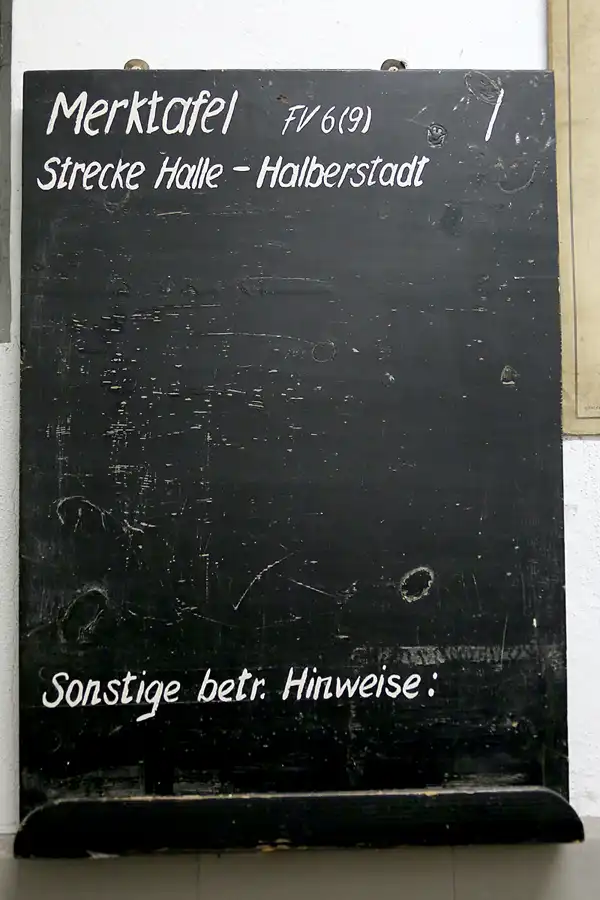 Merktafel FV 6(9) 1
Strecke Halle - Halberstadt
Sonstige betr. Hinweise: